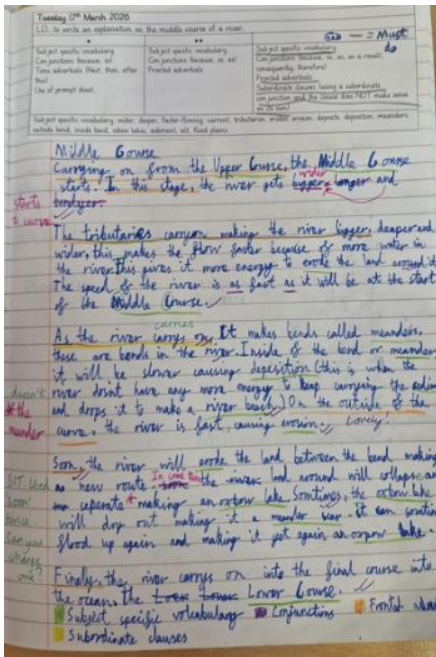 Tuesday 17th March 2026
L.O. to write an explanation on the middle course of a river.
* ** ***
Subject specific vocabulary
Conjunctions (because, so)
Time adverbials (Next, then, after this)
Use of prompt sheet.
Subject specific vocabulary
Conjunctions (because, so, as)
Fronted adverbials
Subject specific vocabulary
Conjunctions (because, so, as, as a result, consequently, therefore)
Fronted adverbials
Subordinate clauses (using a subordinate conjunction and the clause does NOT make sense on its own)
= Must do
Subject specific vocabulary: wider, deeper, faster-flowing, current, tributaries, erosion, deposits, deposition, meanders
outside bend, inside bend, oxbow lakes, sediment, silt, flood plains
Middle Course
Carrying on from the Upper Course, the Middle Course
starts. In this stage, the river gets bigger, longer and
wider
bendyer.
starts to curve
The tributaries carryon making the river bigger, deaper and
wider, this makes the flow faster because of more water in
the river. This gives it more energy to erode the land around it
The speed of the river is as fast as it will be at the start
of the Middle Course.
carries
As the river carrys on, It makes bends called meanders.
these are bends in the river. Inside of the bend or meander
it will be slower causing deposition (this is when the
river dosint have any more energy to keep carrying the
and drops it to make a river beach) On the outside of the
curve, the river is fast, causing erosin. Lovely!
doesn't
* the meander
Soon, the river will erode the land between the bend making
as new route, the river land around will collapse
seperate * making an oxbow lake. Somtimes, the oxbow lake
will drop out making it a meander scar. it can
flood up again and making it yet again an oxpow lake.
used 'soon' twice can you change one?
Finally, the river carrys on into the final course into
the ocean, the Lower Course.
Subject specific volcabulary Conjunctions Fronted
Subordinate clauses